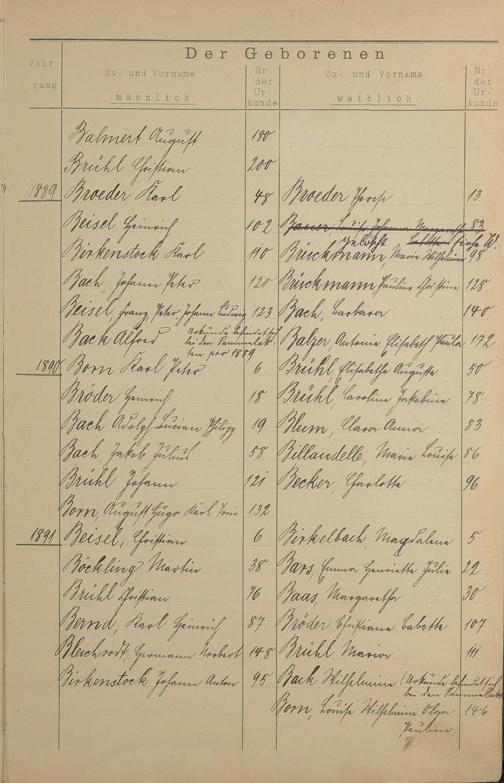 Der Geborenen
Jahr gang
Zu- und Vorname männlich
Nr. der Ur- kunde
Zu- und Vorname weiblich
Nr. der Ur- kunde
Balmert August 180
Brühl Christian 200
1889 Broeder Karl 48 Broeder 13
Beisel Heinrich 102 Bauer Louise Johanna Margareth 83
Birkenstock Karl 110 Brückmann Maria Wilhelmine 98
Bach Johann Peter 120 Brückmann Pauline Christine 128
Beisel Franz Peter Johann Ludwig 123 Bach, Barbara 140
Back Alfred Urkunde befindet sich bei den Sammelak- ten pro 1889 Balzer Antonie Elisabeth Paula 172
1890 Born Karl Peter 6 Brühl, Elisabetha Augusta 50
Bröder Heinrich 18 Brühl, Caroline Jakobina 78
Bach Adolf Lucian Philipp 19 Blum, Clara Anna 83
Bach Jakob Julius 58 Billaudelle, Maria Louise 86
Brühl Johann 121 Becker, Charlotte 96
Born, August Hugo Karl 132
1891 Beisel, Christian 6 Birkelbach Magdalena 5
Böckling Martin 38 Bars, Emma Henriette Julie 22
Brühl Christian 76 Baas, Margaretha 30
Bernd, Karl Heinrich 87 Bröder Christiane Babette 107
Bleichrodt, Hermann Norbert 148 Brühl Maria 111
Birkenstock Johann Anton 95 Back Wilhelmine (Urkunde befindet sich bei den Sammelakten
Born, Louise Wilhelmine Olga Pauline 146